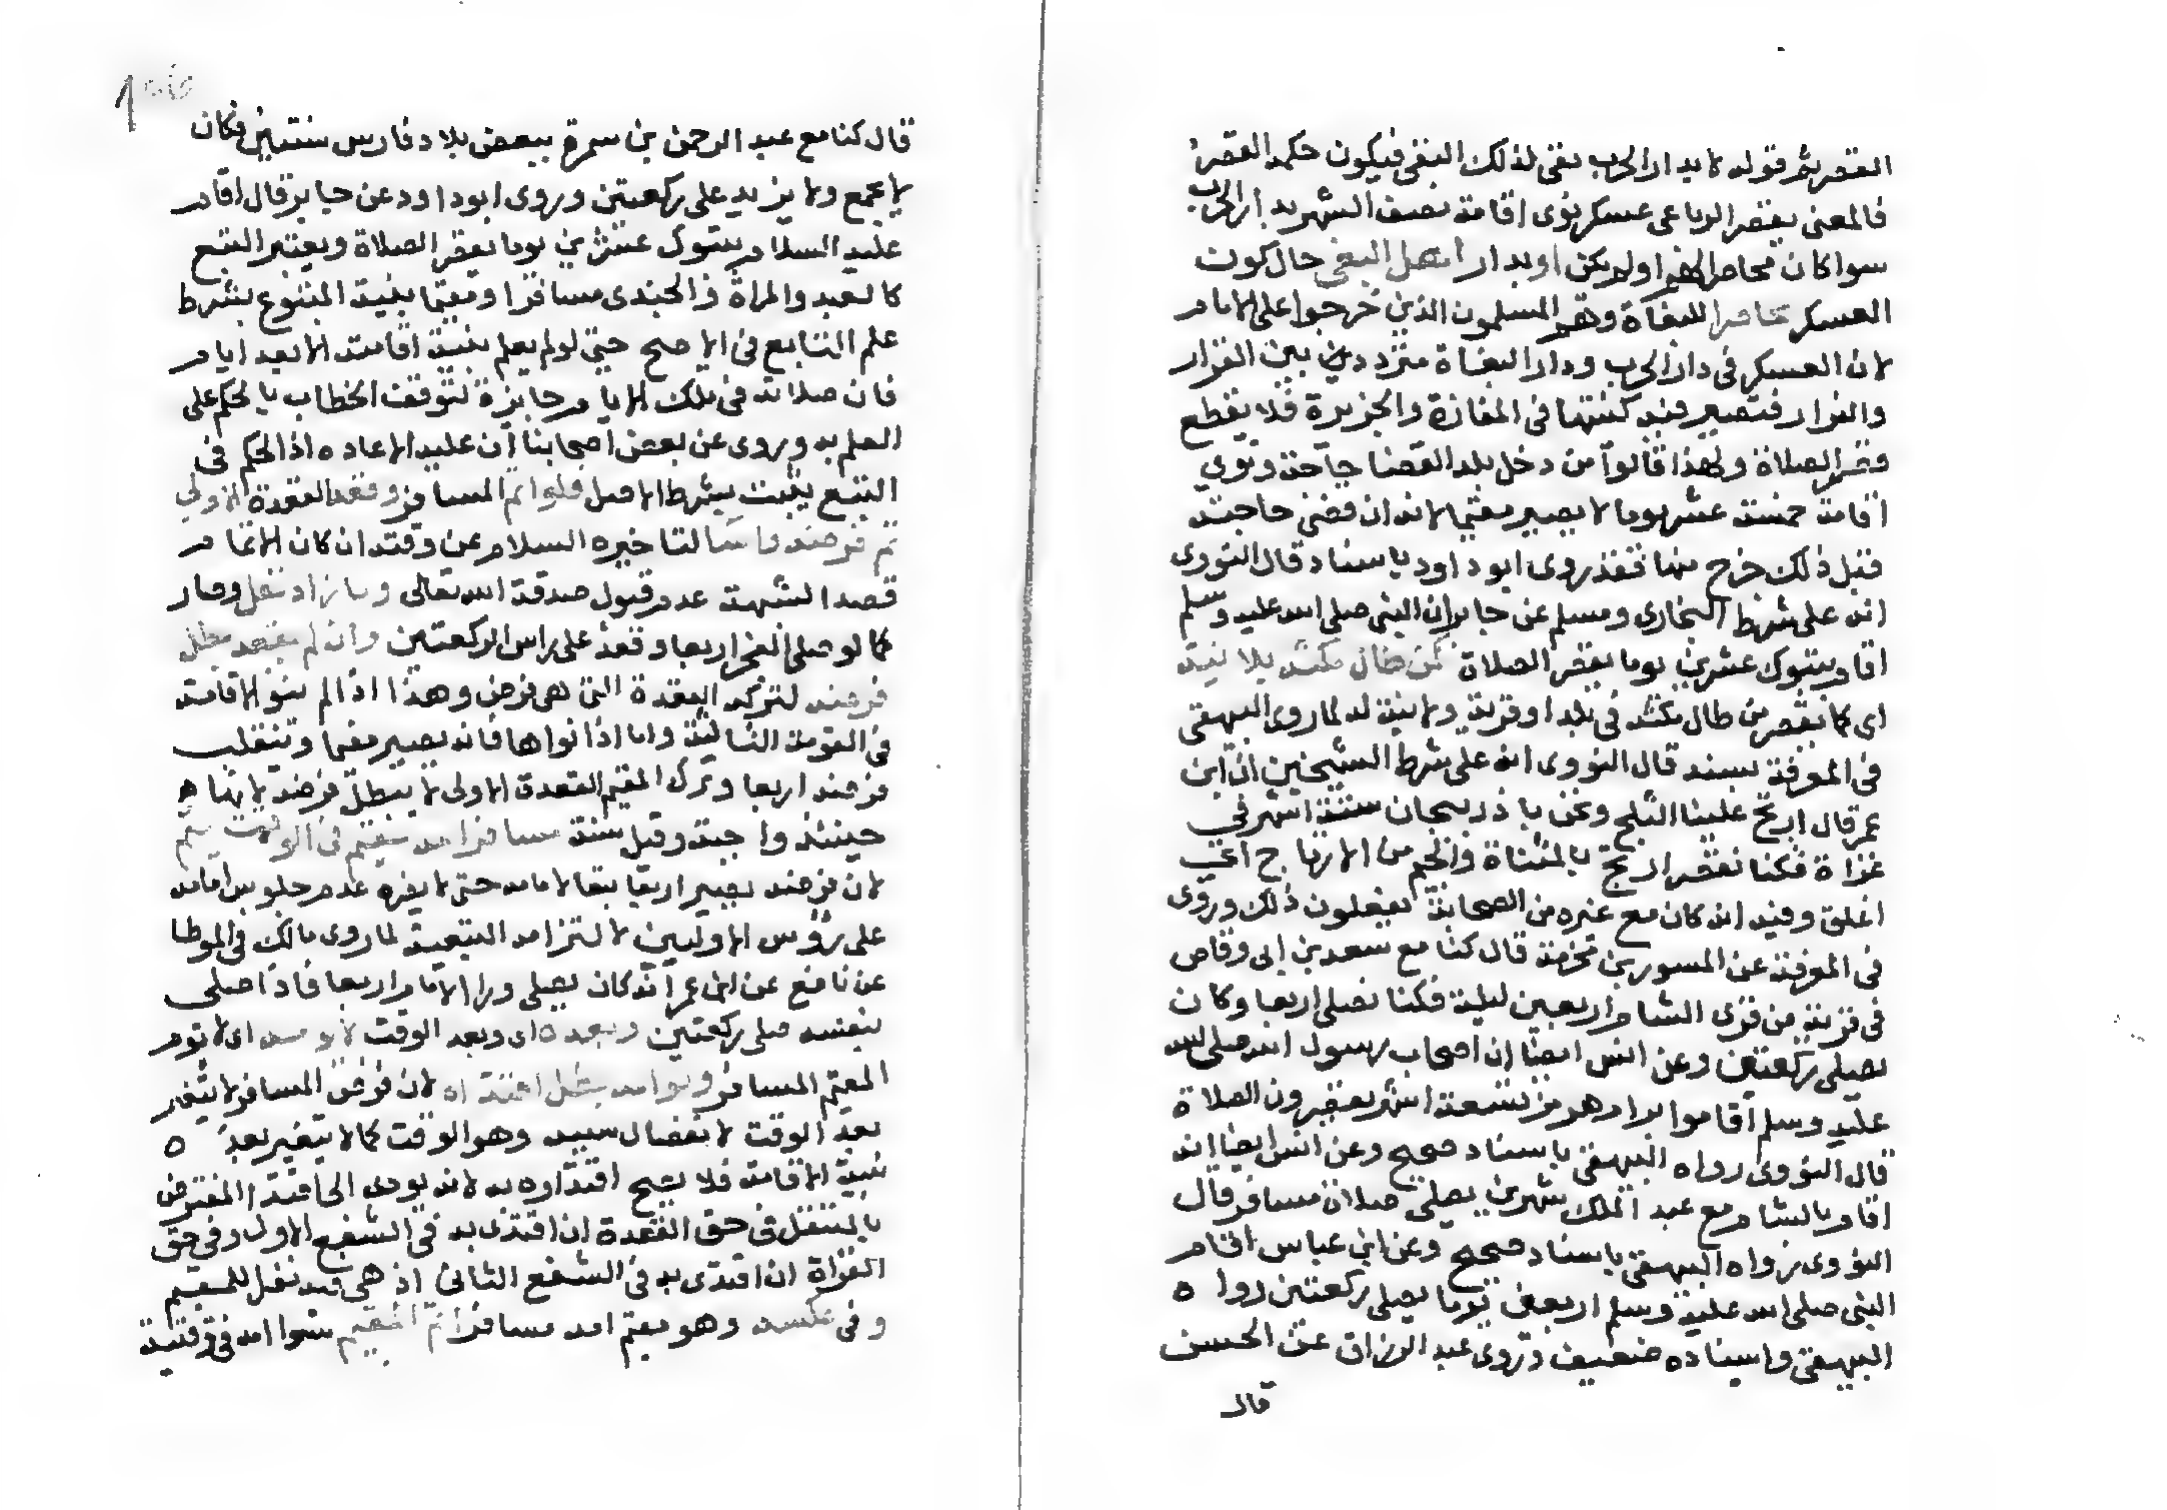 القصر ثم قوله لا بدار الحرب نفى لذلك النفي فيكون حكمه القصر
فالمعنى يقصر الرباعى عسكر نوى اقامة نصف الشهر بدار الحرب
سوا كان محاصرالهم اولم يكن اوبدار اهل البغى حال كون
العسكر محاصرا للبغاة وهم المسلمون الذين خرجوا على الامام
لان العسكر فى دار الحرب ودار البغاة متردد بين القرار
والفرار فتصير فيه كنيتها فى المفازة والجزيرة فلا يقطع
قصر الصلاة ولهذا قالوا من دخل بلد القضا حاجة ونوى
اقامة خمسة عشر يوما لا يصير مقيما لانه ان قضى حاجته
قبل ذلك خرج منها فقد روى ابو داود باسناد قال النووى
انه على شرط البخارى ومسلم عن جابر ان النبى صلى الله عليه وسلم
اقام بتبوك عشرين يوما يقصر الصلاة كمن طال مكثه بلا نية
اى كما يقصر من طال مكثه فى بلد اوقرية ولا نية له لما روى البيهقى
فى المعرفة بسند قال النووى انه على شرط الشيخين ان ابن
عمر قال ارتج علينا الثلج ونحن باذربيجان ستة اشهر فى
غزاة فكنا نقصر ارتج بالمثناة والجيم من الارتاج اعنى
اغلق وفيه انه كان مع غيره من الصحابة يفعلون ذلك وروى
فى المعرفة عن المسور بن مخرمة قال كنا مع سعد بن ابى وقاص
فى قرية من قرى الشام اربعين ليلة فكنا نصلى اربعا وكان
يصلى ركعتين وعن انس ايضا ان اصحاب رسول الله صلى الله
عليه وسلم اقاموا برام هرمز تسعة اشهر يقصرون الصلاة
قال النووى رواه البيهقى باسناد صحيح وعن انس ايضا انه
اقام بالشام مع عبد الملك شهرين يصلى صلاة مسافر قال
النووى رواه البيهقى باسناد صحيح وعن ابن عباس اقام
النبى صلى الله عليه وسلم اربعين يوما يصلى ركعتين رواه
البيهقى واسناده ضعيف وروى عبد الرزاق عن الحسن
قال
قال كنا مع عبد الرحمن بن سمرة ببعض بلاد فارس سنتين فكان
لا يجمع ولا يزيد على ركعتين وروى ابو داود عن جابر قال اقام
عليه السلام بتبوك عشرين يوما يقصر الصلاة ويعتبر التبع
كالعبد والمراة والجندى مسافرا ومقيما بنية المتبوع بشرط
علم التابع فى الاصح حتى لو لم يعلم بنية اقامته الا بعد ايام
فان صلاته فى تلك الايام جايزة لتوقف الخطاب بالحكم على
العلم به وروى عن بعض اصحابنا ان عليه الاعاده اذ الحكم فى
التبع يثبت بشرط الاصل فلو اتم المسافر وقعد القعدة الاولى
تم فرضه واسا لتاخيره السلام عن وقته ان كان الاتمام
قصدا لشبهة عدم قبول صدقة الله تعالى وما زاد نفل وصار
كما لو صلى الفجر اربعا وقعد على راس الركعتين وان لم يقعد بطل
فرضه لتركه القعدة التى هى فرض وهذا اذا لم ينو الاقامة
فى القومة الثالثة واما اذا نواها فانه يصير مقيما وتنقلب
فرضه اربعا وترك المقيم القعدة الاولى لا يبطل فرضه لانها
حينئذ واجبة وقيل سنة مسافر امه مقيم فى الوقت يتم
لان فرضه يصير اربعا تبعا لامامه حتى لا يضره عدم جلوس امامه
على رؤس الاوليين لالتزامه التبعية لما روى مالك فى الموطا
عن نافع عن ابن عمر انه كان يصلى ورا الامام اربعا فاذا صلى
بنفسه صلى ركعتين وبعده اى وبعد الوقت لا يومه اى لا يوم
المقيم المسافر لان فرض المسافر لا يتغير
بعد الوقت لانفصال سببه وهو الوقت كما لا يتغير بعد ه
نية الاقامة فلا يصح اقتداوه به لانه يودى الى اقتدا المفترض
بالمتنفل فى حق القعدة ان اقتدى به فى الشفع الاول وفى حق
القراة ان اقتدى به فى الشفع الثانى اذ هى فيه نفل للمقيم
وفى عكسه وهو مقيم امه مسافر اتم المقيم سوا امه فى وقتية